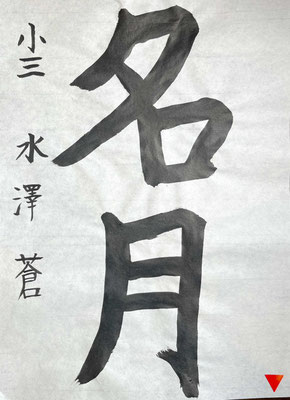 名月
小三 水澤 蒼